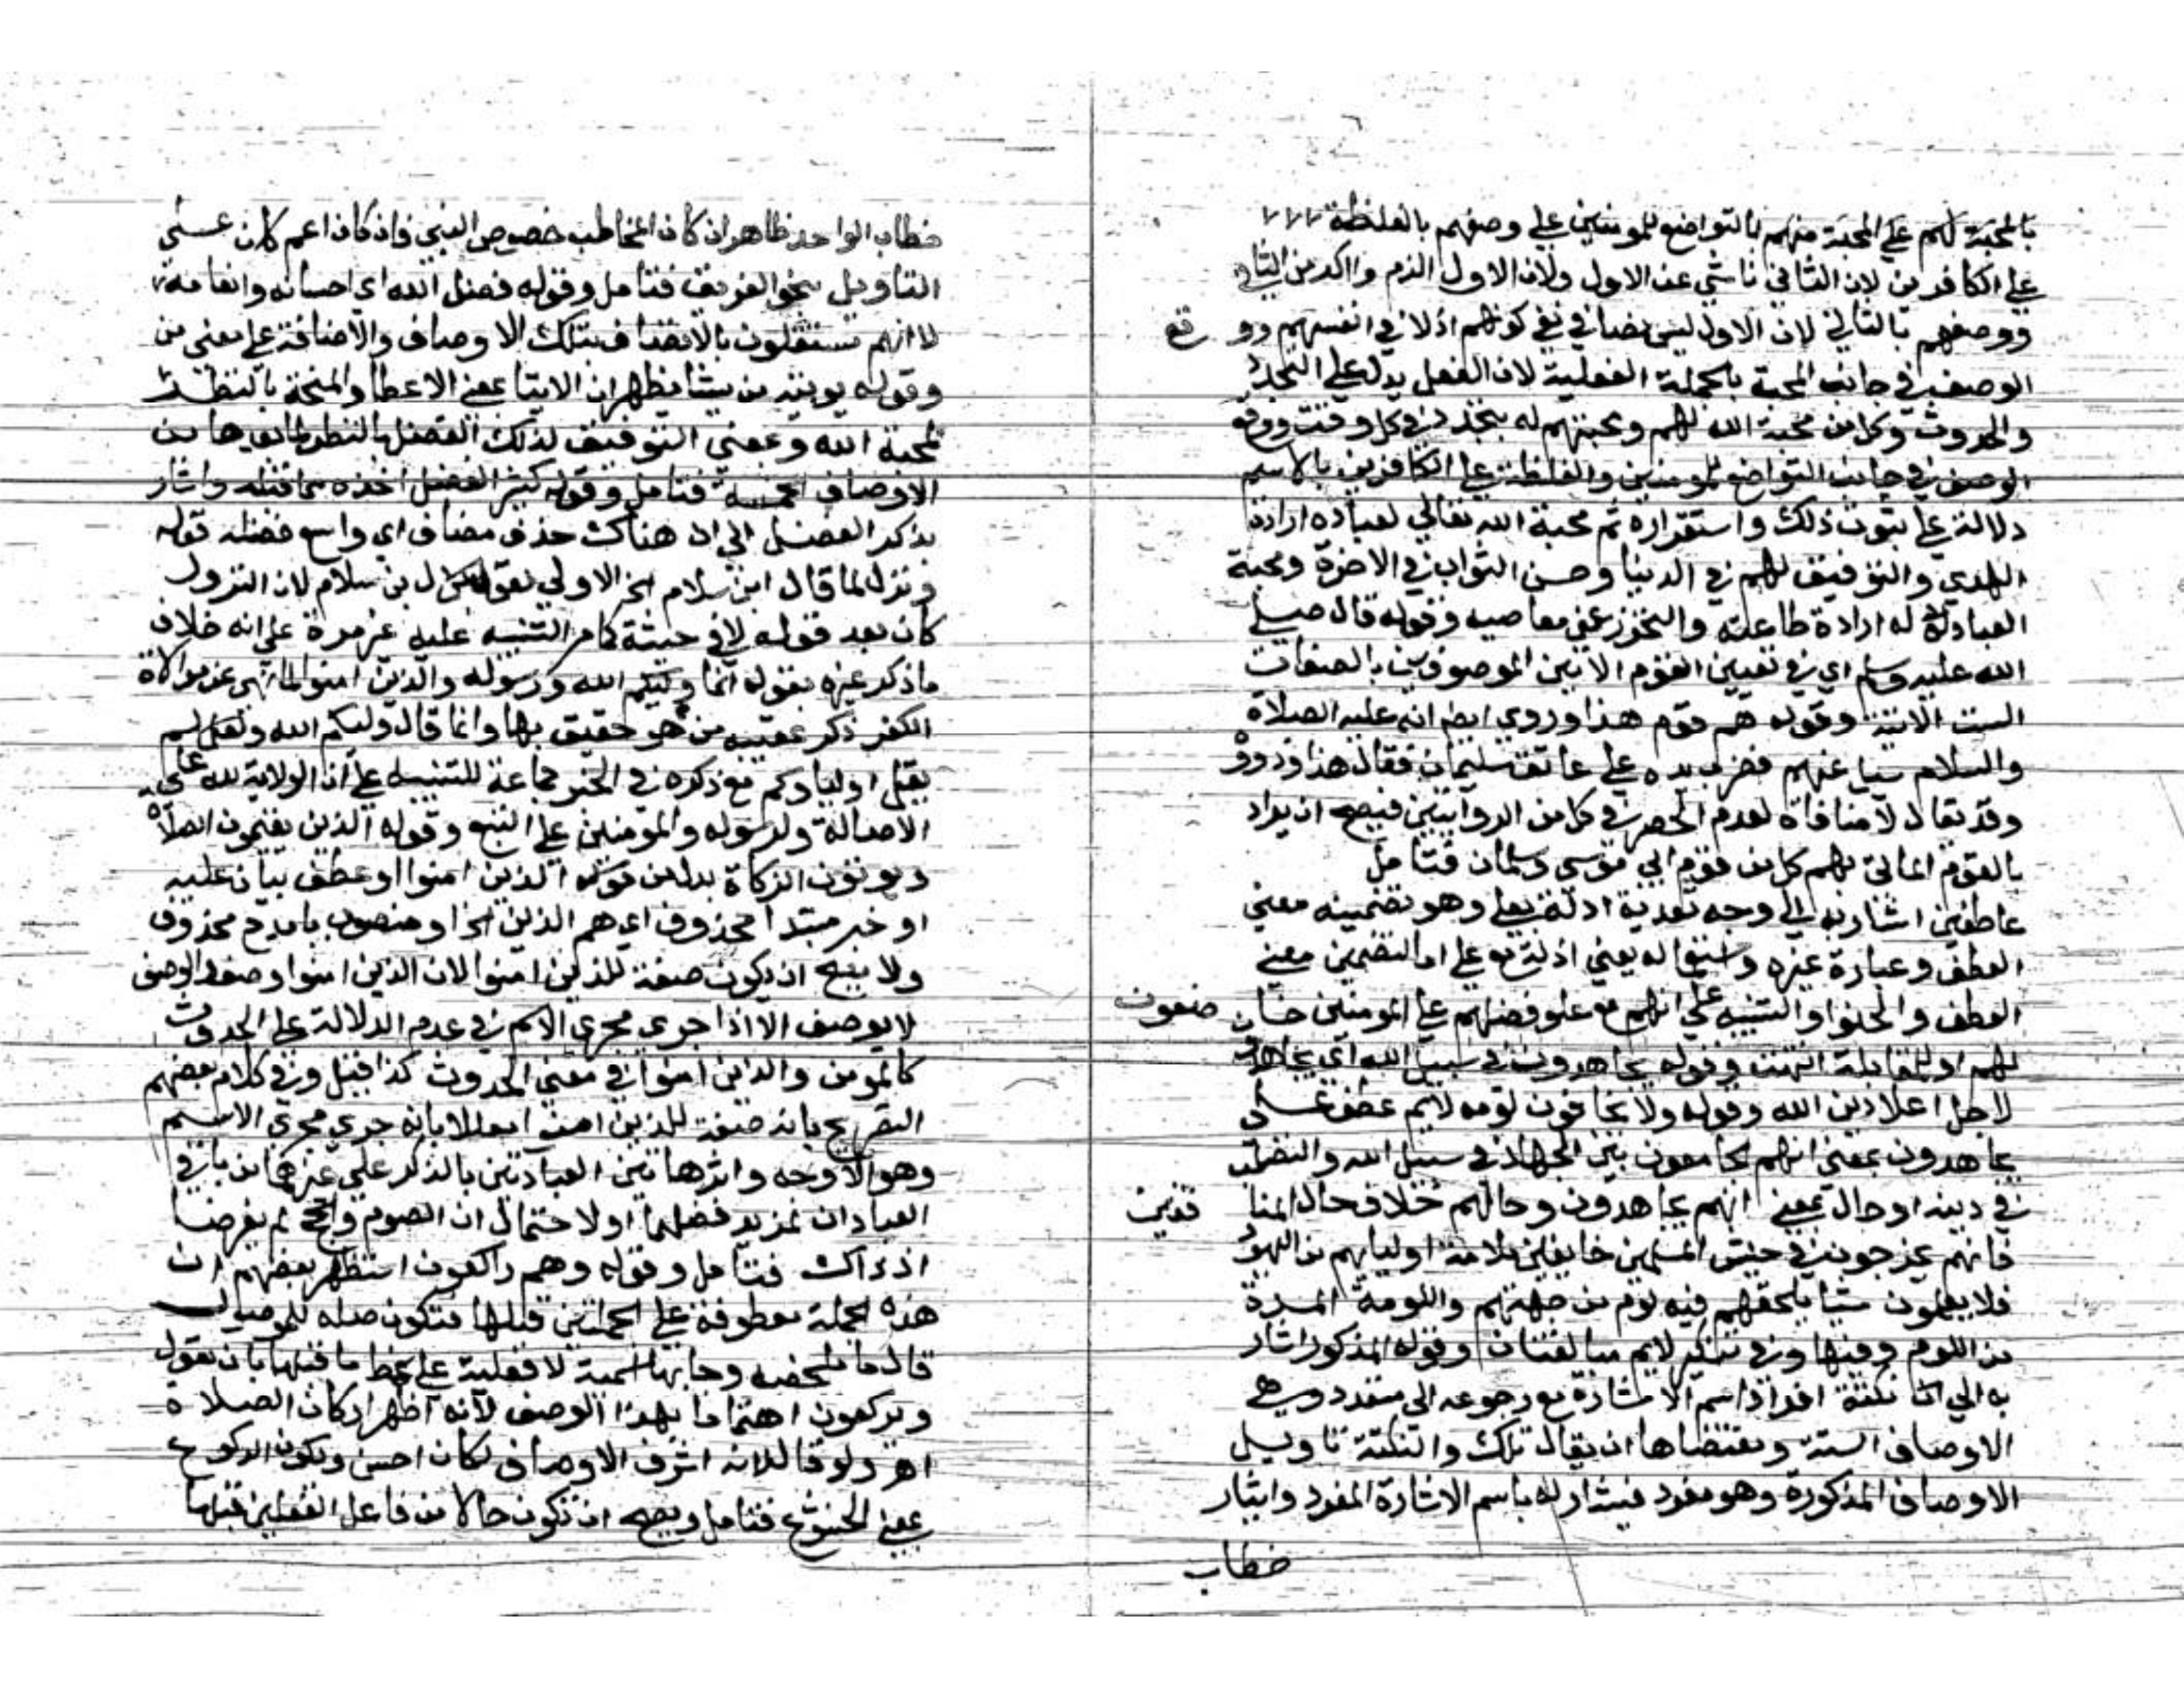 بالمحبة لهم على المحبة منهم بالتواضع للمومنين على وصفهم بالغلظة
على الكافرين لان الثاني ناشي عن الاول ولان الاول الزم واكد من الثاني
ووصفهم بالتالي لان الاول ليس نصا في نفي كونهم اذلا في انفسهم ووقع
الوصف في جانب المحبة بالجملة الفعلية لان الفعل يدل على التجدد
والحدوث وكل من محبة الله لهم ومحبتهم له يتجدد في كل وقت ووقع
الوصف في جانب التواضع للمومنين والغلظة على الكافرين بالاسم
دلالة على ثبوت ذلك واستقراره ثم محبة الله تعالى لعباده ارادة
الهدى والتوفيق لهم في الدنيا وحسن الثواب في الاخرة ومحبة
العباد له ارادة طاعته والتحرز عن معاصيه وقوله قال صلى
الله عليه وسلم اي في تعيين القوم الاتين الموصوفين بالصفات
الست الاتية وقوله هم قوم هذا وروي ايضا انه عليه الصلاة
والسلام سيل عنهم فضرب يده على عاتق سليمان فقال هذا وذووه
وقد يقال لا منافاة لعدم الحصر في كل من الروايتين فيصح ان يراد
بالقوم الماتى بهم كل من قوم ابي موسى وسلمان فتامل
عاطفين اشار به الى وجه تعدية اذلة بعلى وهو تضمينه معنى
العطف وعبارة غيره واستعماله يعني اذلة مع على اما لتضمين معنى
العطف والحنو او التنبيه على انهم مع علو فضلهم على المومنين خاضعون
لهم او للمقابلة انتهت وقوله يجاهدون في سبيل الله اي يجاهدون
لاجل اعلا دين الله وقوله ولا يخافون لومه لايم عطف على
يجاهدون بمعنى انهم يجامعون بين الجهاد في سبيل الله والتصلب
في دينه او حال بمعنى انهم يجاهدون وحالهم خلاف حال المنافقين
فانهم يخرجون في جيش المسلمين خايفين ملامة اوليايهم من اليهود
فلا يعملون شيا يلحقهم فيه لوم من جهتهم واللومة المرة
من اللوم وفيها وفي تنكير لايم مبالغتان وقوله المذكور اشار
به الى ان نكتة افراد اسم الاشارة مع رجوعه الى متعدد وهي
الاوصاف الستة ومقتضاها ان يقال تلك والنكتة تاويل
الاوصاف المذكورة وهو مفرد فيشار له باسم الاشارة المفرد وايثار
خطاب
خطاب الواحد ظاهر ان كان المخاطب خصوص النبي فان كان اعم كان على
التاويل بنحو الفريق فتامل وقوله فضل الله اي احسانه وانعامه
لا انهم مستقلون بالاتصاف بتلك الاوصاف والاضافة على معنى من
وقوله يوتيه من يشا يظهر ان الايتا بمعنى الاعطا والمنحة بالنظر
لمحبة الله وبمعنى التوفيق لذلك الفضل بالنظر لما بعدها من
الاوصاف الخمسة فتامل وقوله كثير الفضل اخذه مما قبله واشار
بذكر الفضل الى ان هناك حذف مضاف اي واسع فضله قوله
ونزل لما قال ابن سلام الخ الاولى بقول ابن سلام لان النزول
كان بعد قوله لا في حيثه كما مر التنبيه عليه غير مرة على انه خلاف
ما ذكر غيره بقوله انما وليكم الله ورسوله والذين امنوا لما نهى عن موالاة
الكفر ذكر عقيبه من هو حقيق بها وانما قال وليكم الله ولم يقل
يقل اولياوكم مع ذكره في الخبر جماعة للتنبيه على ان الولاية لله على
الاصالة ولرسوله والمومنين على التبع وقوله الذين يقيمون الصلاة
ويوتون الزكاة بدل من قوله الذين امنوا او عطف بيان عليه
او خبر مبتدا محذوف اي هم الذين الخ او منصوب بامدح محذوف
ولا يصح ان يكون صفة للذين امنوا لان الذين امنوا وصف والوصف
لا يوصف الا اذا جرى مجرى الاسم في عدم الدلالة على الحدوث
كالمومن والذين امنوا في معنى الحدوث كذا قيل وفي كلام بعضهم
التصريح بانه صفة للذين امنوا معللا بانه جرى مجرى الاسم
وهو الاوجه واثر هاتين العبادتين بالذكر على غيرهما من باقي
العبادات لمزيد فضلهما او لاحتمال ان الصوم والحج لم يفرضا
اذ ذاك فتامل وقوله وهم راكعون استظهر بعضهم ان
هذه الجملة معطوفة على الجملتين قبلها فتكون صلة للموصول
قال ما ملخصه وجا بها اسمية لا فعلية على نمط ما قبلها بان يقول
ويركعون اهتماما بهذا الوصف لانه اظهر اركان الصلاة
اهـ ولو قال لانه اشرف الاوصاف لكان احسن ويكون الركوع
بمعنى الخشوع فتامل ويصح ان تكون حالا من فاعل الفعلين قبلها